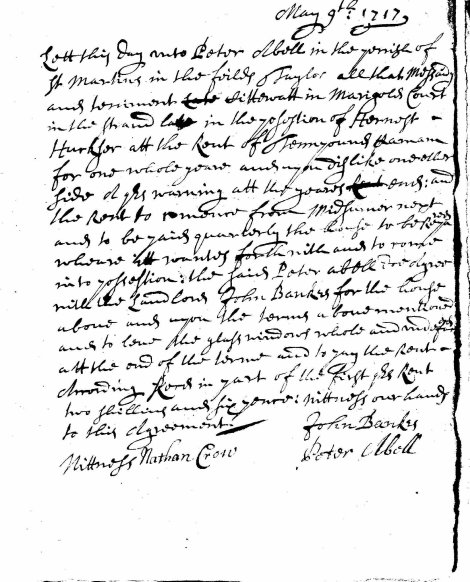 May 9th: 1717
Lett this day unto Peter Abell in the perish of
St Martins in the feilds Taylor all that Messuag
and teniment Late sittewatt in Marigold Court
in the strand late in the possestion of Hernest
Huckser att the Rent of Tenn pounds
for one whole yeare and upon dislike one ether
side A qrs warning att the years end: and
the Rent to comence from Midsumer next
and to be paid quarterly the house to be
wheare itt wantes forthwith and to come
into possestion: the said Peter Abell agree
with the Landlord John Bankes for the house
above and upon the termes above mentioned
and to leve the glass windows whole and
att the end of the terme and to pay the Rent
According Recd in part of the first qrs Rent
two shillings and six pence: Wittness our hands
to this Agreement
John Bankes
Wittness Nathan Crow Peter Abell